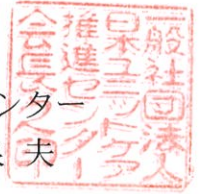 一般社団法人
日本ユニットケア
推進センター
会長之印
ンター
夫